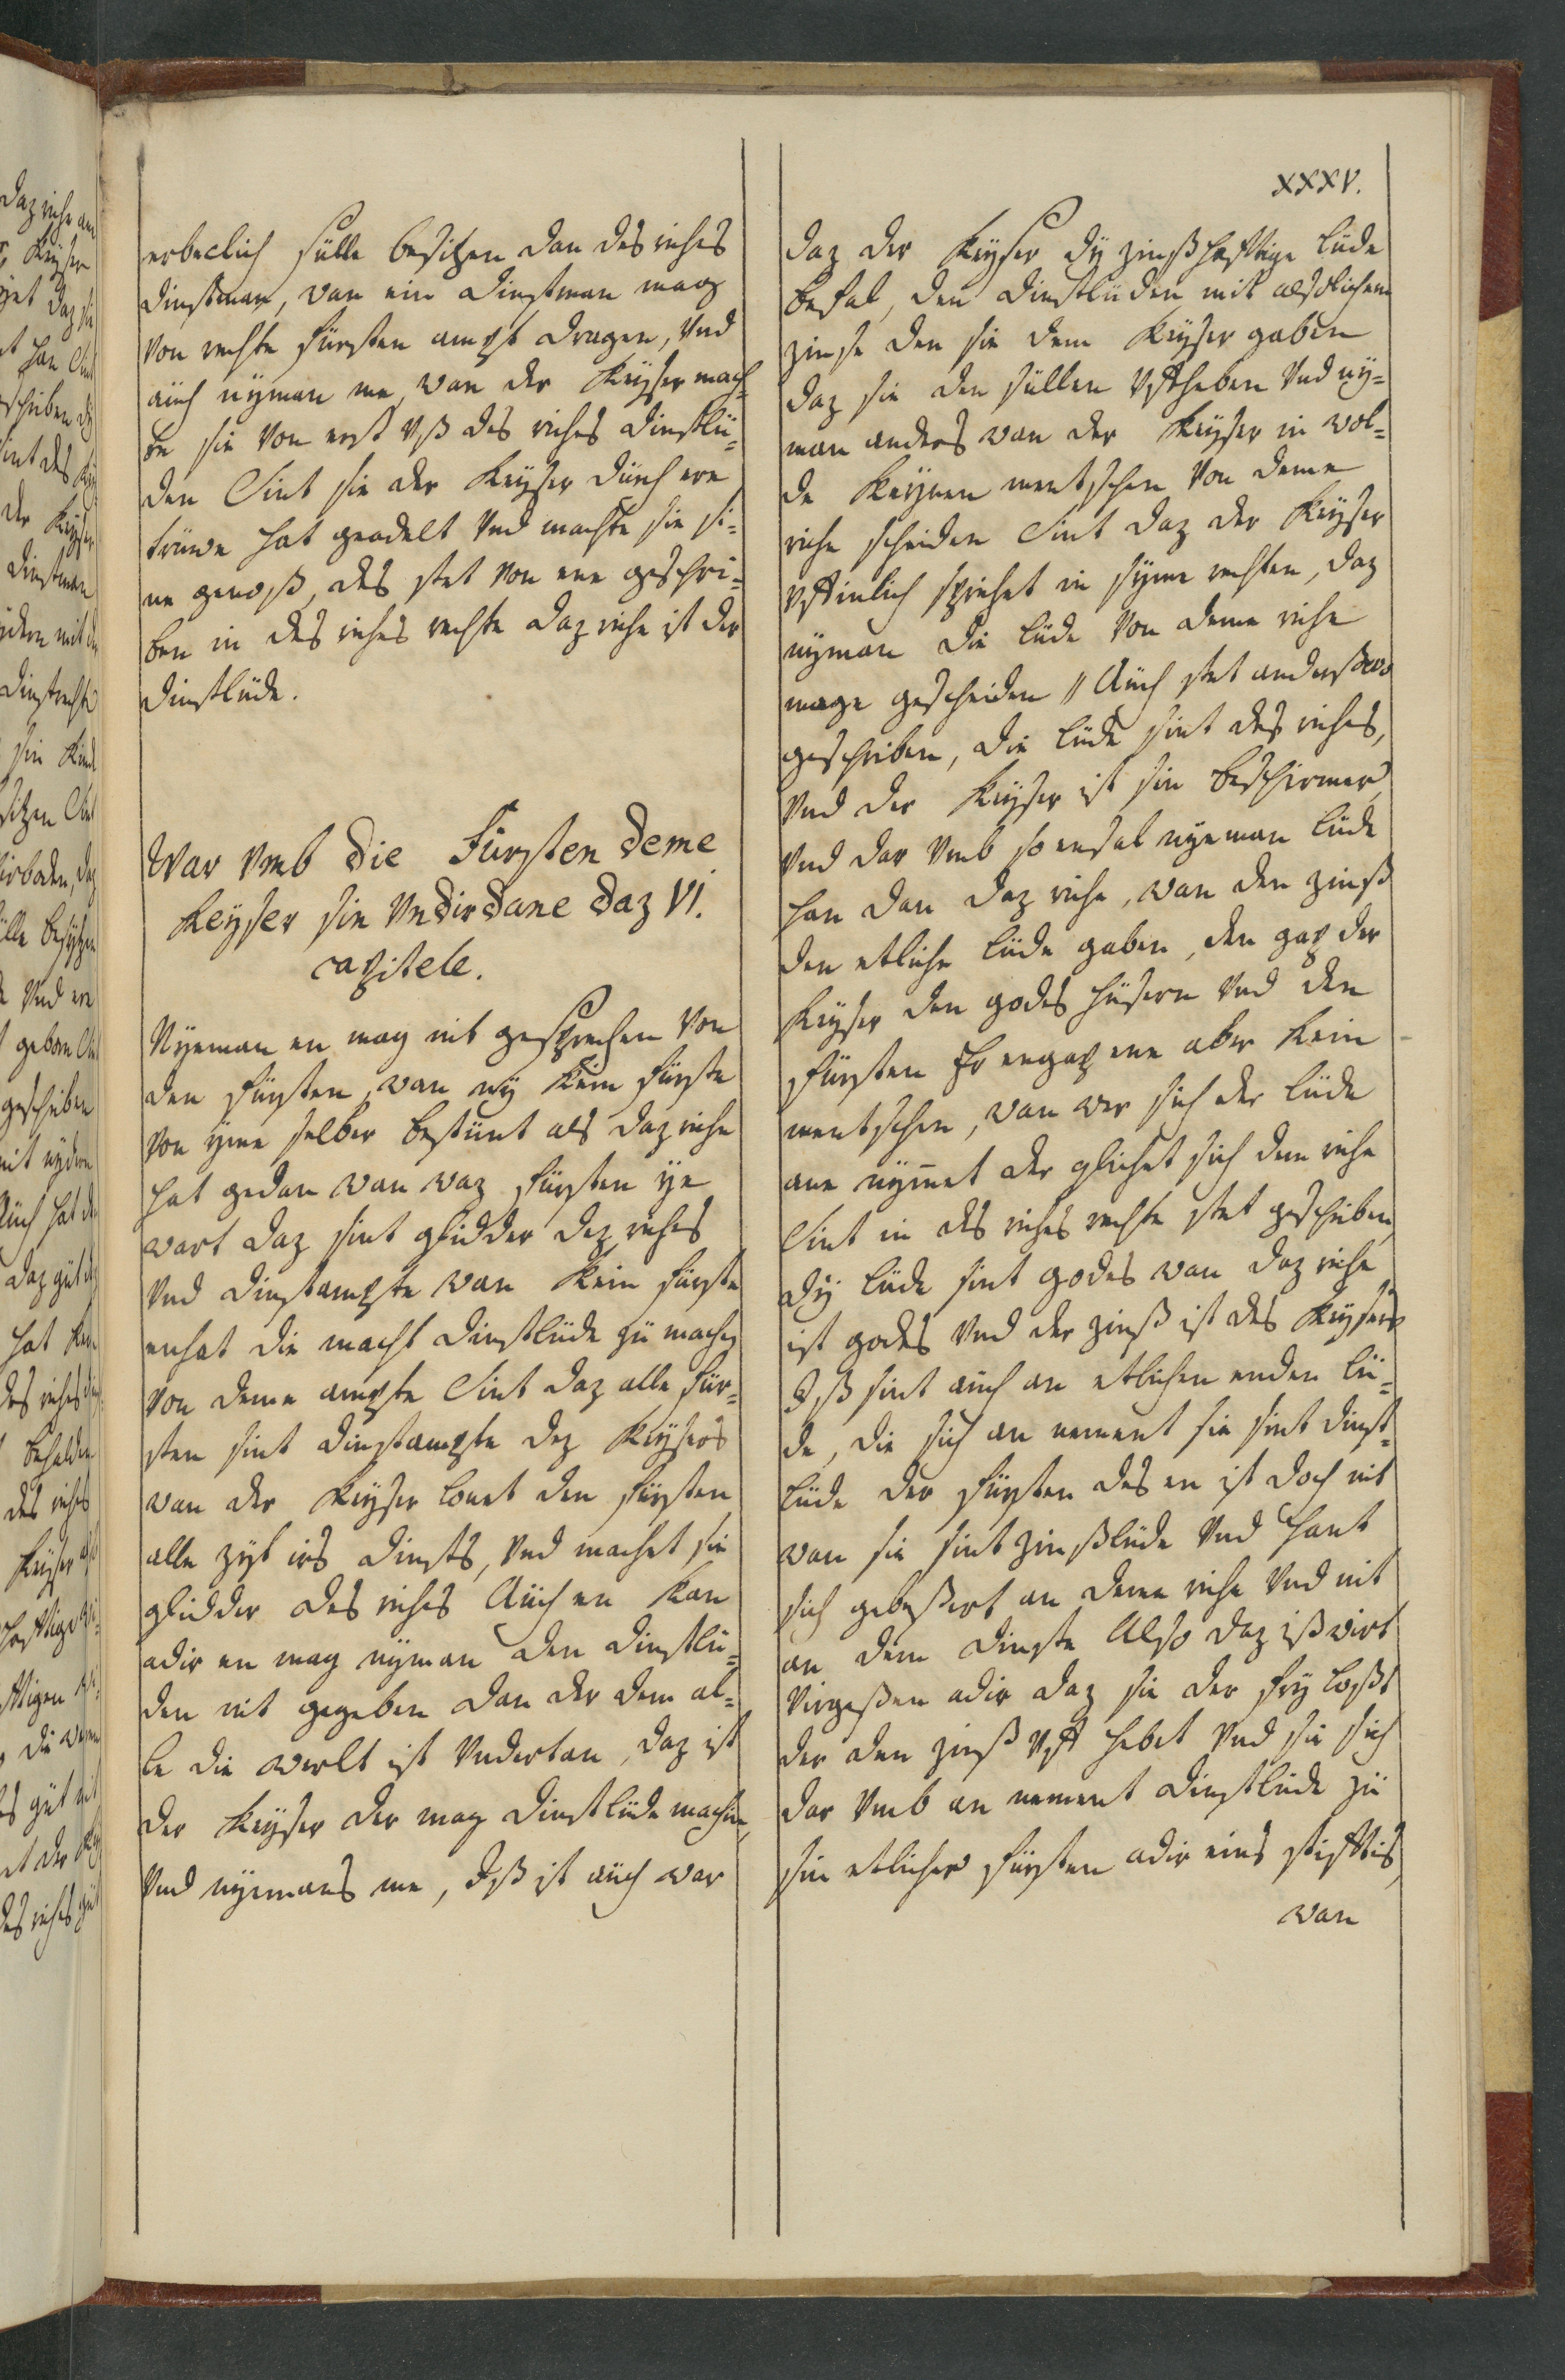 XXXV.
erbeclich sülle besitzen dan des riches
dinstman, wan ein dinstman mag
von rechte fürsten ampt dragen, vnd
auch nyman me, wan der Keyser mach-
te sie von erst vß des riches dinstlü-
den Sint sie der Keyser dürch ere
trüwe hat geadelt vnd machte sie si-
ne genoß, des stet von eme geschri-
ben in des riches rechte daz riche ist der
dinstlüde.
War vmb die Fürsten deme
Keyser sin vndirdane daz VI.
capitele.
Nyeman en mag nit gesprechen von
den fürsten, wan ny kein fürste
von yme selber bestünt als daz riche
hat gedan wan waz fürsten ye
wart daz sint glidder dez riches
vnd dinstampte wan kein fürste
enhat die macht dinstlüde zü machen
von deme ampte Sint daz alle für-
sten sint dinstampte dez Keysers
wan der Keyser lonet den fürsten
alle zyt irs dinsts, vnd machet sie
glidder des riches Auch en kan
adir en mag nyman den dinstlü-
den nit gegeben dan der dem al-
le die werlt ist vndertan, daz ist
der Keyser der mag dinstlüde machen,
vnd nyemans me, Iß ist auch war
daz der Keyser dy zinßhafftige lüde
befal, den dinstlüden mit alsolichem
zinse den sie dem Keyser gaben
daz sie den süllen vffheben vnd ny-
man anders wan der Keyser in wol-
de keynen mentschen von deme
riche scheiden Sint daz der Keyser
vffinlich sprichet in syme rechten, daz
nyman die lüde von deme riche
mage gescheiden // Auch stet anderßwo
geschriben, die lüde sint des riches,
vnd der Keyser ist sin beschirmer,
vnd dar vmb so ensal nyeman lüde
han dan daz riche, wan den zinß
den etliche lüde gaben, den gap der
Keyser den godes hüsern vnd den
fürsten Er engap eme aber kein
mentschen, wan wer sich der lüde
ane nymmet der glichet sich dem riche
Sint in des riches rechte stet geschriben,
dy lüde sint godes wan daz riche
ist godes vnd der zinß ist des Keysers
Iß sint auch an etlichen enden lü-
de, die sich an nement sie sint dinst-
lüde der fürsten des en ist doch nit
wan sie sint zinßlüde vnd hant
sich gebeßert an deme riche vnd nit
an dem dinste Also daz iß wirt
virgeßen adir daz sie der fry loßt
der den zinß vff hebet vnd sie sich
dar vmb an nement dinstlüde zü
sin etlicher fürsten adir eins stifftis,
wan